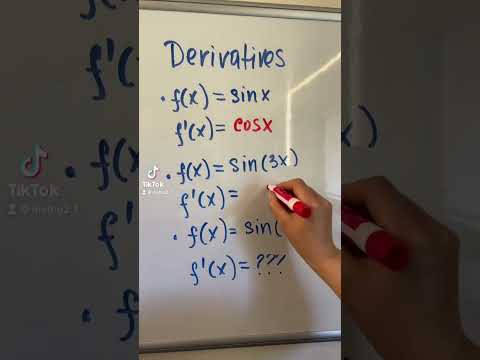 Derivatives
• f(x) = sinx
f'(x) = cosx
• f(x) = sin(3x)
f'(x) =
• f(x) = sin(
f'(x) = ???!
TikTok
TikTok